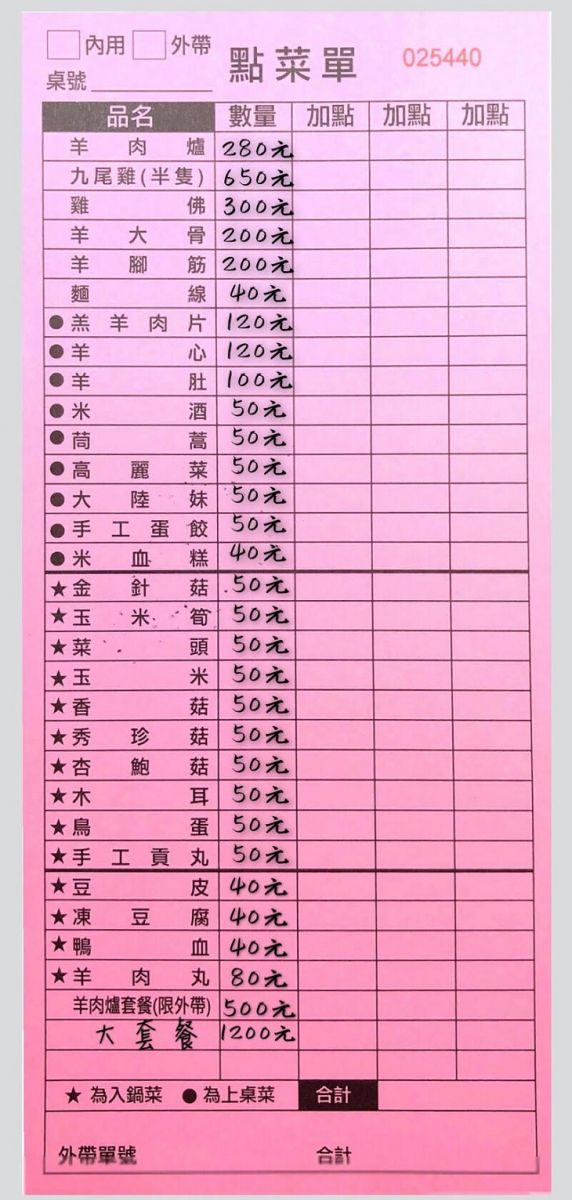 內用 外帶
桌號
點菜單 025440
品名 數量 加點 加點 加點
羊肉爐 280元
九尾雞(半隻) 650元
雞佛 300元
羊大骨 200元
羊腳筋 200元
麵線 40元
●羔羊肉片 120元
●羊心 120元
●羊肚 100元
●米酒 50元
●茼蒿 50元
●高麗菜 50元
●大陸妹 50元
●手工蛋餃 50元
●米血糕 40元
★金針菇 50元
★玉米筍 50元
★菜頭 50元
★玉米 50元
★香菇 50元
★秀珍菇 50元
★杏鮑菇 50元
★木耳 50元
★鳥蛋 50元
★手工貢丸 50元
★豆皮 40元
★凍豆腐 40元
★鴨血 40元
★羊肉丸 80元
羊肉爐套餐(限外帶) 500元
大套餐 1200元
★ 為入鍋菜 ● 為上桌菜 合計
外帶單號 合計